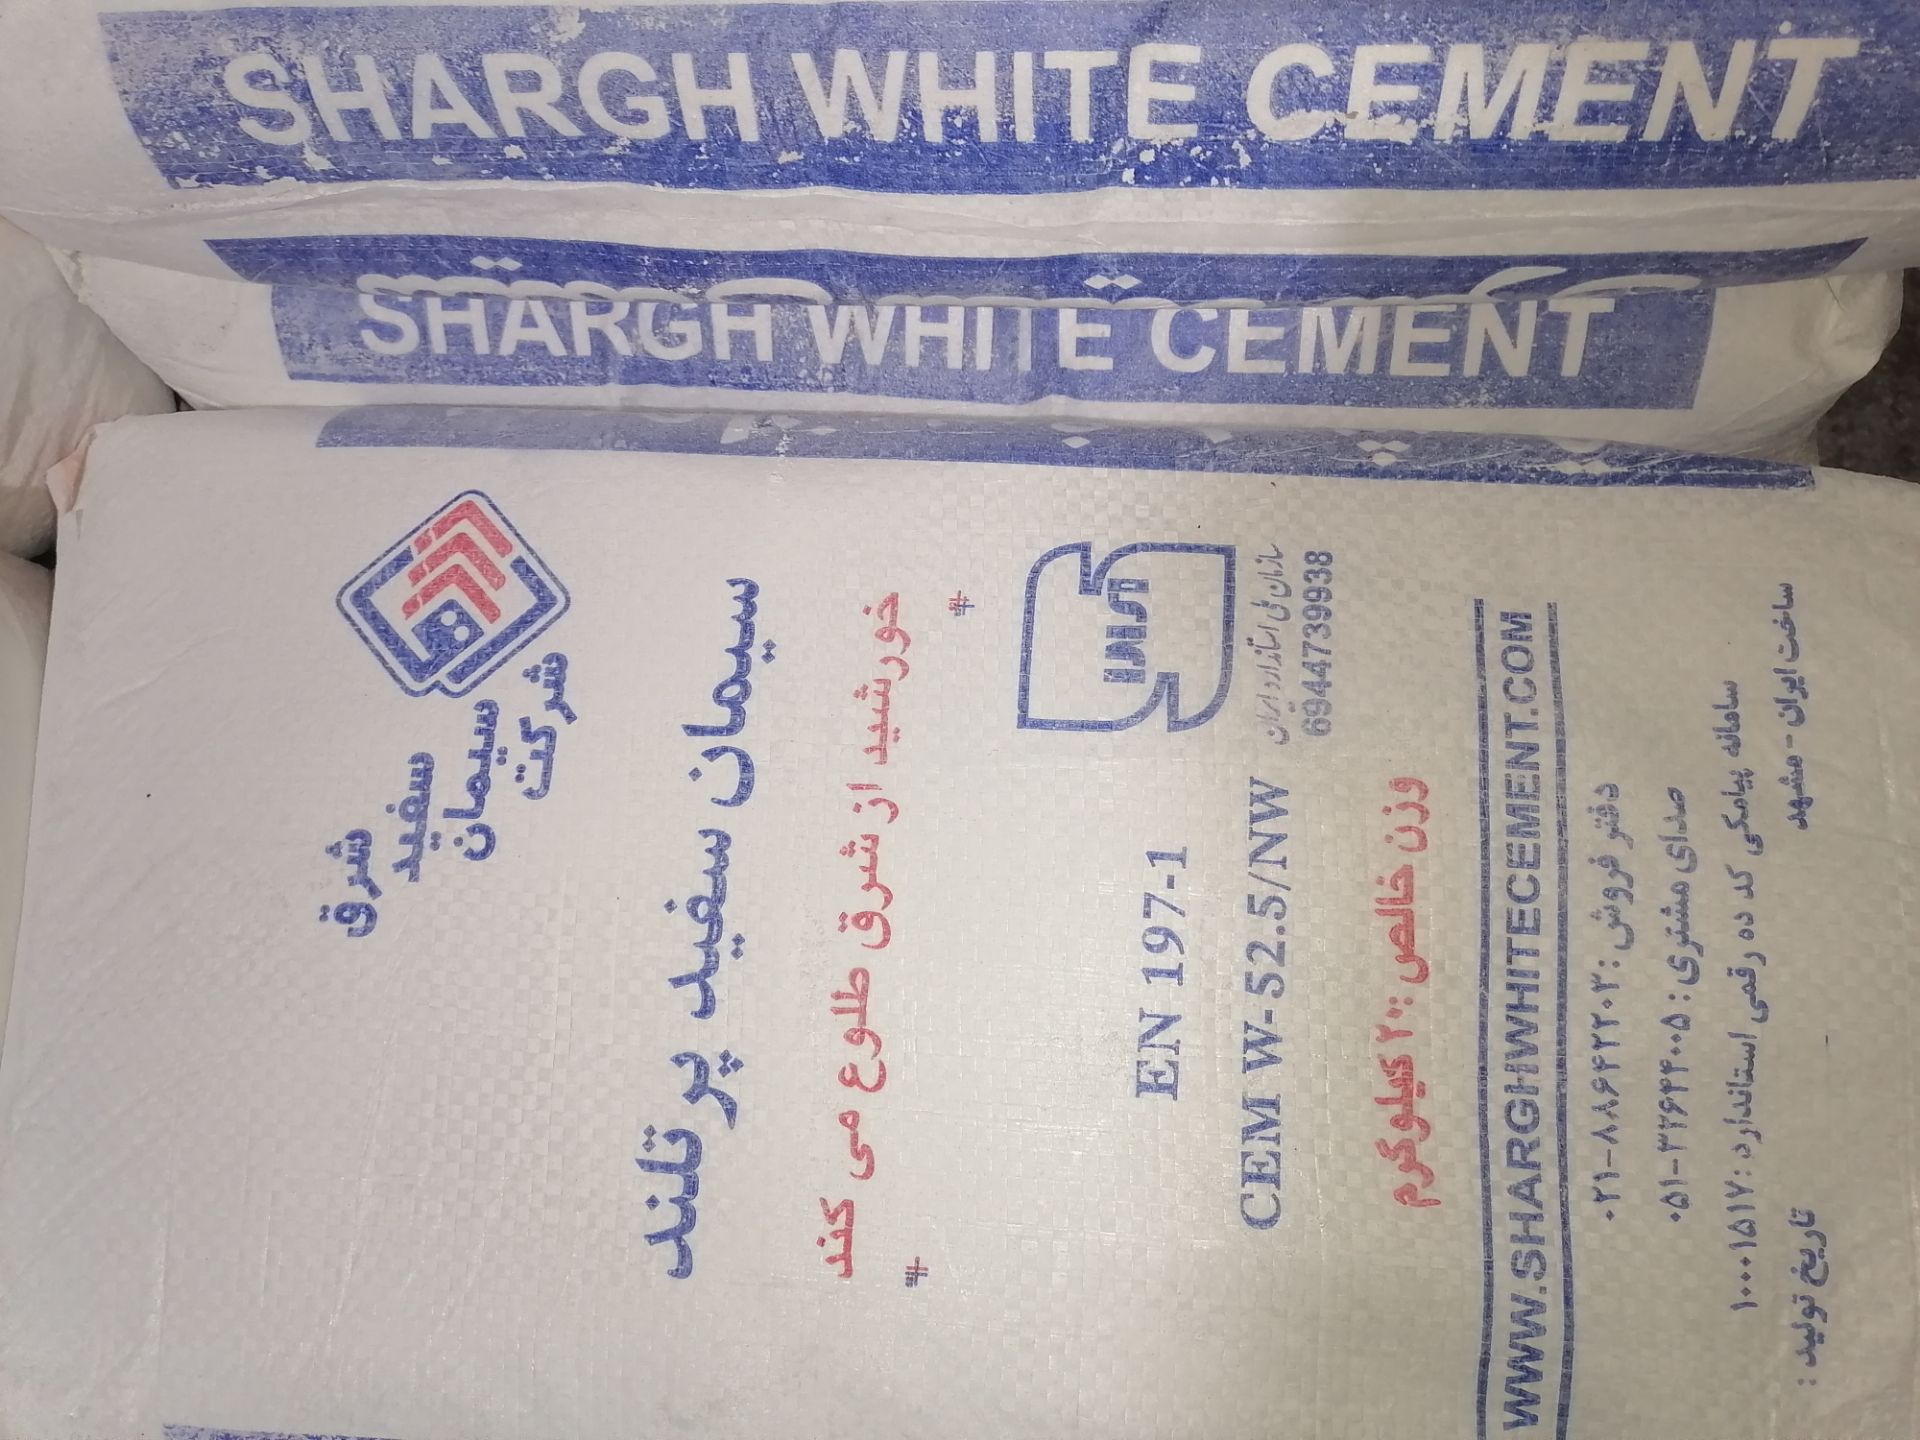 SHARGH WHITE CEMENT
SHARGH WHITE CEMENT
شرکت
سیمان
سفید
شرق
سیمان سفید پرتلند
# خورشید از شرق طلوع می کند #
ISIRI
سازمان ملی استاندارد ایران
6944739938
EN 197-1
CEM W-52.5/NW
وزن خالص : ۲۰ کیلوگرم
WWW.SHARGHWHITECEMENT.COM
دفتر فروش : ۸۸۶۴۲۲۰۲-۰۲۱
صدای مشتری : ۳۲۶۴۴۰۰۵-۰۵۱
سامانه پیامکی کد ده رقمی استاندارد : ۱۰۰۰۱۵۱۷
ساخت ایران - مشهد
تاریخ تولید :